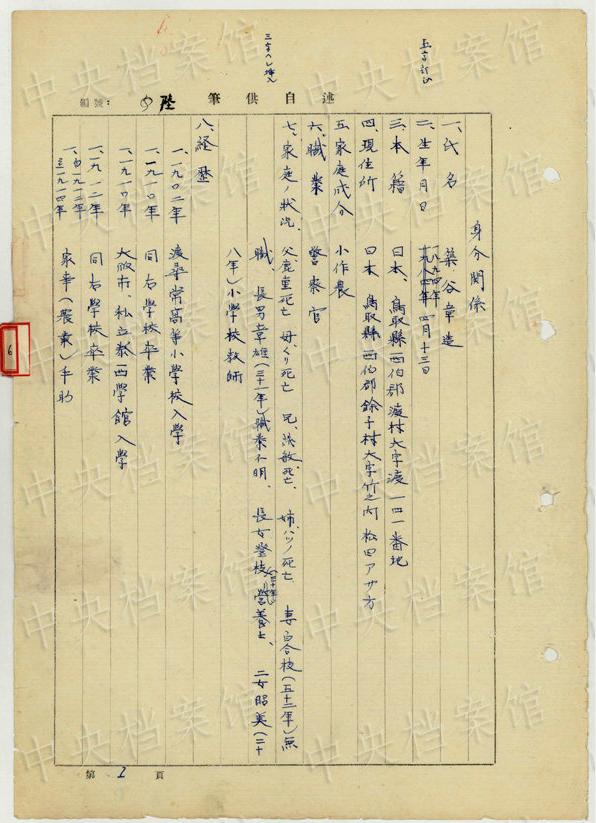 述自供筆
編號：
陸
三字ヘし挿入
五字訂正
身分関係
一、氏名 築谷章造
二、生年月日 一八九四年四月十三日
三、本籍 日本、鳥取縣西伯郡渡村大字渡一四一番地
四、現住所 日本 鳥取縣西伯郡餘子村大字竹之内 松田アサ方
五、家庭成分 小作農
六、職業 警察官
七、家庭ノ状況 父鹿重死亡 母、くり死亡 兄、死亡、姉、ハツノ死亡 妻百合枝（五十二年）無
職、長男章雄（三十一年）職業不明、長女登枝（三十年）営養士、二女昭美（二十
八年）小学校教師
八、経歴
一、一九〇二年 渡尋常高等小学校入学
一、一九一〇年 同右学校卒業
一、一九一〇年 大阪市、私立泰西学館入学
一、一九一二年 同右学校卒業
一、自一九一二年至一九一四年 家事（農業）手助
第 2 頁
6
中央档案馆